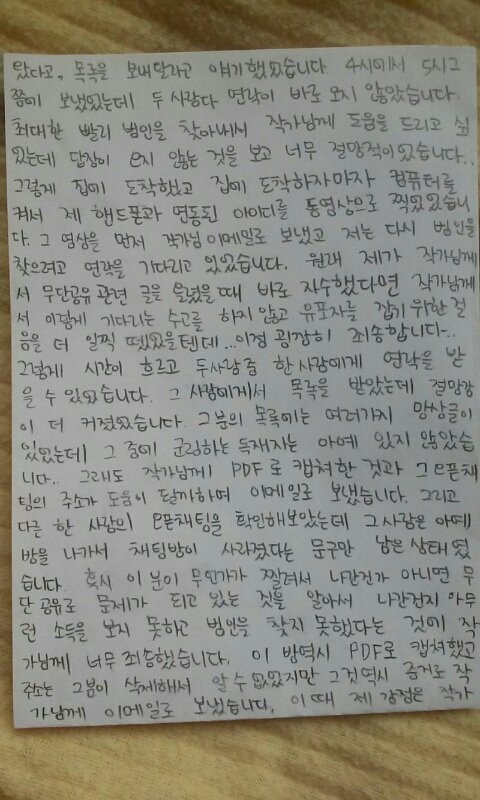 왔다고, 목록을 보내달라고 얘기했었습니다. 4시에서 5시그
쯤에 보냈었는데 두 사람다 연락이 바로 오지 않았습니다.
최대한 빨리 범인을 찾아내서 작가님께 도움을 드리고 싶
었는데 답장이 오지 않는 것을 보고 너무 절망적이었습니다..
그렇게 집에 도착했고 집에 도착하자마자 컴퓨터를
켜서 제 핸드폰과 연동된 아이디를 동영상으로 찍었었습니
다. 그 영상을 먼저 작가님 이메일로 보냈고 저는 다시 범인을
찾으려고 연락을 기다리고 있었습니다. 원래 제가 작가님께
서 무단공유 관련 글을 올렸을 때 바로 자수했다면 작가님께
서 이렇게 기다리는 수고를 하지 않고 유포자를 잡기 위한 걸
음을 더 일찍 뗐었을텐데...이점 굉장히 죄송합니다..
그렇게 시간이 흐르고 두사람중 한사람에게 연락을 받
을 수 있었습니다. 그 사람에게서 목록을 받았는데 절망감
이 더 커졌었습니다. 그분의 목록에는 여러가지 망상글이
있었는데 그 중에 군림하는 독재자는 아예 있지 않았습
니다.. 그래도 작가님께 PDF로 캡쳐한 것과 그 오픈채
팅의 주소가 도움이 될까하여 이메일로 보냈습니다. 그리고
다른 한 사람의 오픈채팅을 확인해보았는데 그사람은 아예
방을 나가서 채팅방이 사라졌다는 문구만 남은 상태였
습니다. 혹시 이 분이 무언가가 찔려서 나간건가 아니면 무
단공유로 문제가 되고 있는 것을 알아서 나간건지 아무
런 소득을 보지 못하고 범인을 찾지 못했다는 것에 작
가님께 너무 죄송했습니다. 이 방역시 PDF로 캡쳐했고
주소는 그분이 삭제해서 알 수 없었지만 그것역시 증거로 작
가님께 이메일로 보냈습니다. 이때 제 감정은 작가